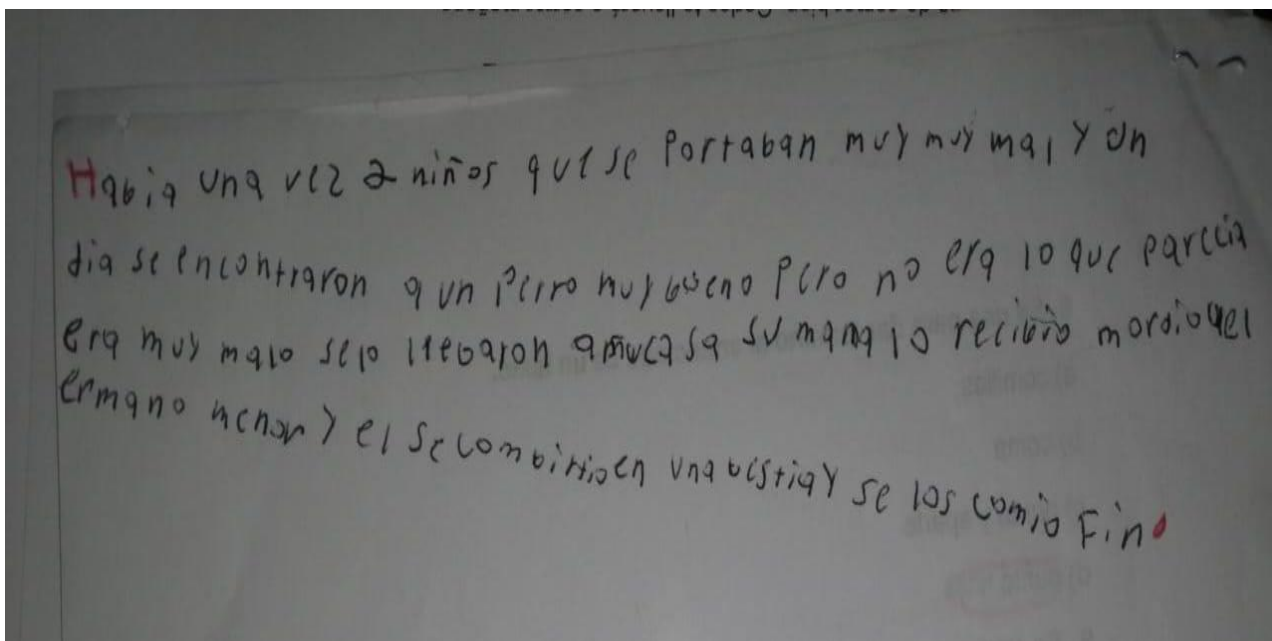 Habia una vez 2 niños que se Portaban muy muy mal y un
dia se encontraron a un Perro muy bueno Pero no era lo que parecia
era muy malo selo llebaron a su casa su mama lo recibio mordio
ermano menor y el se combirtio en una bistia y se los comio Fin.